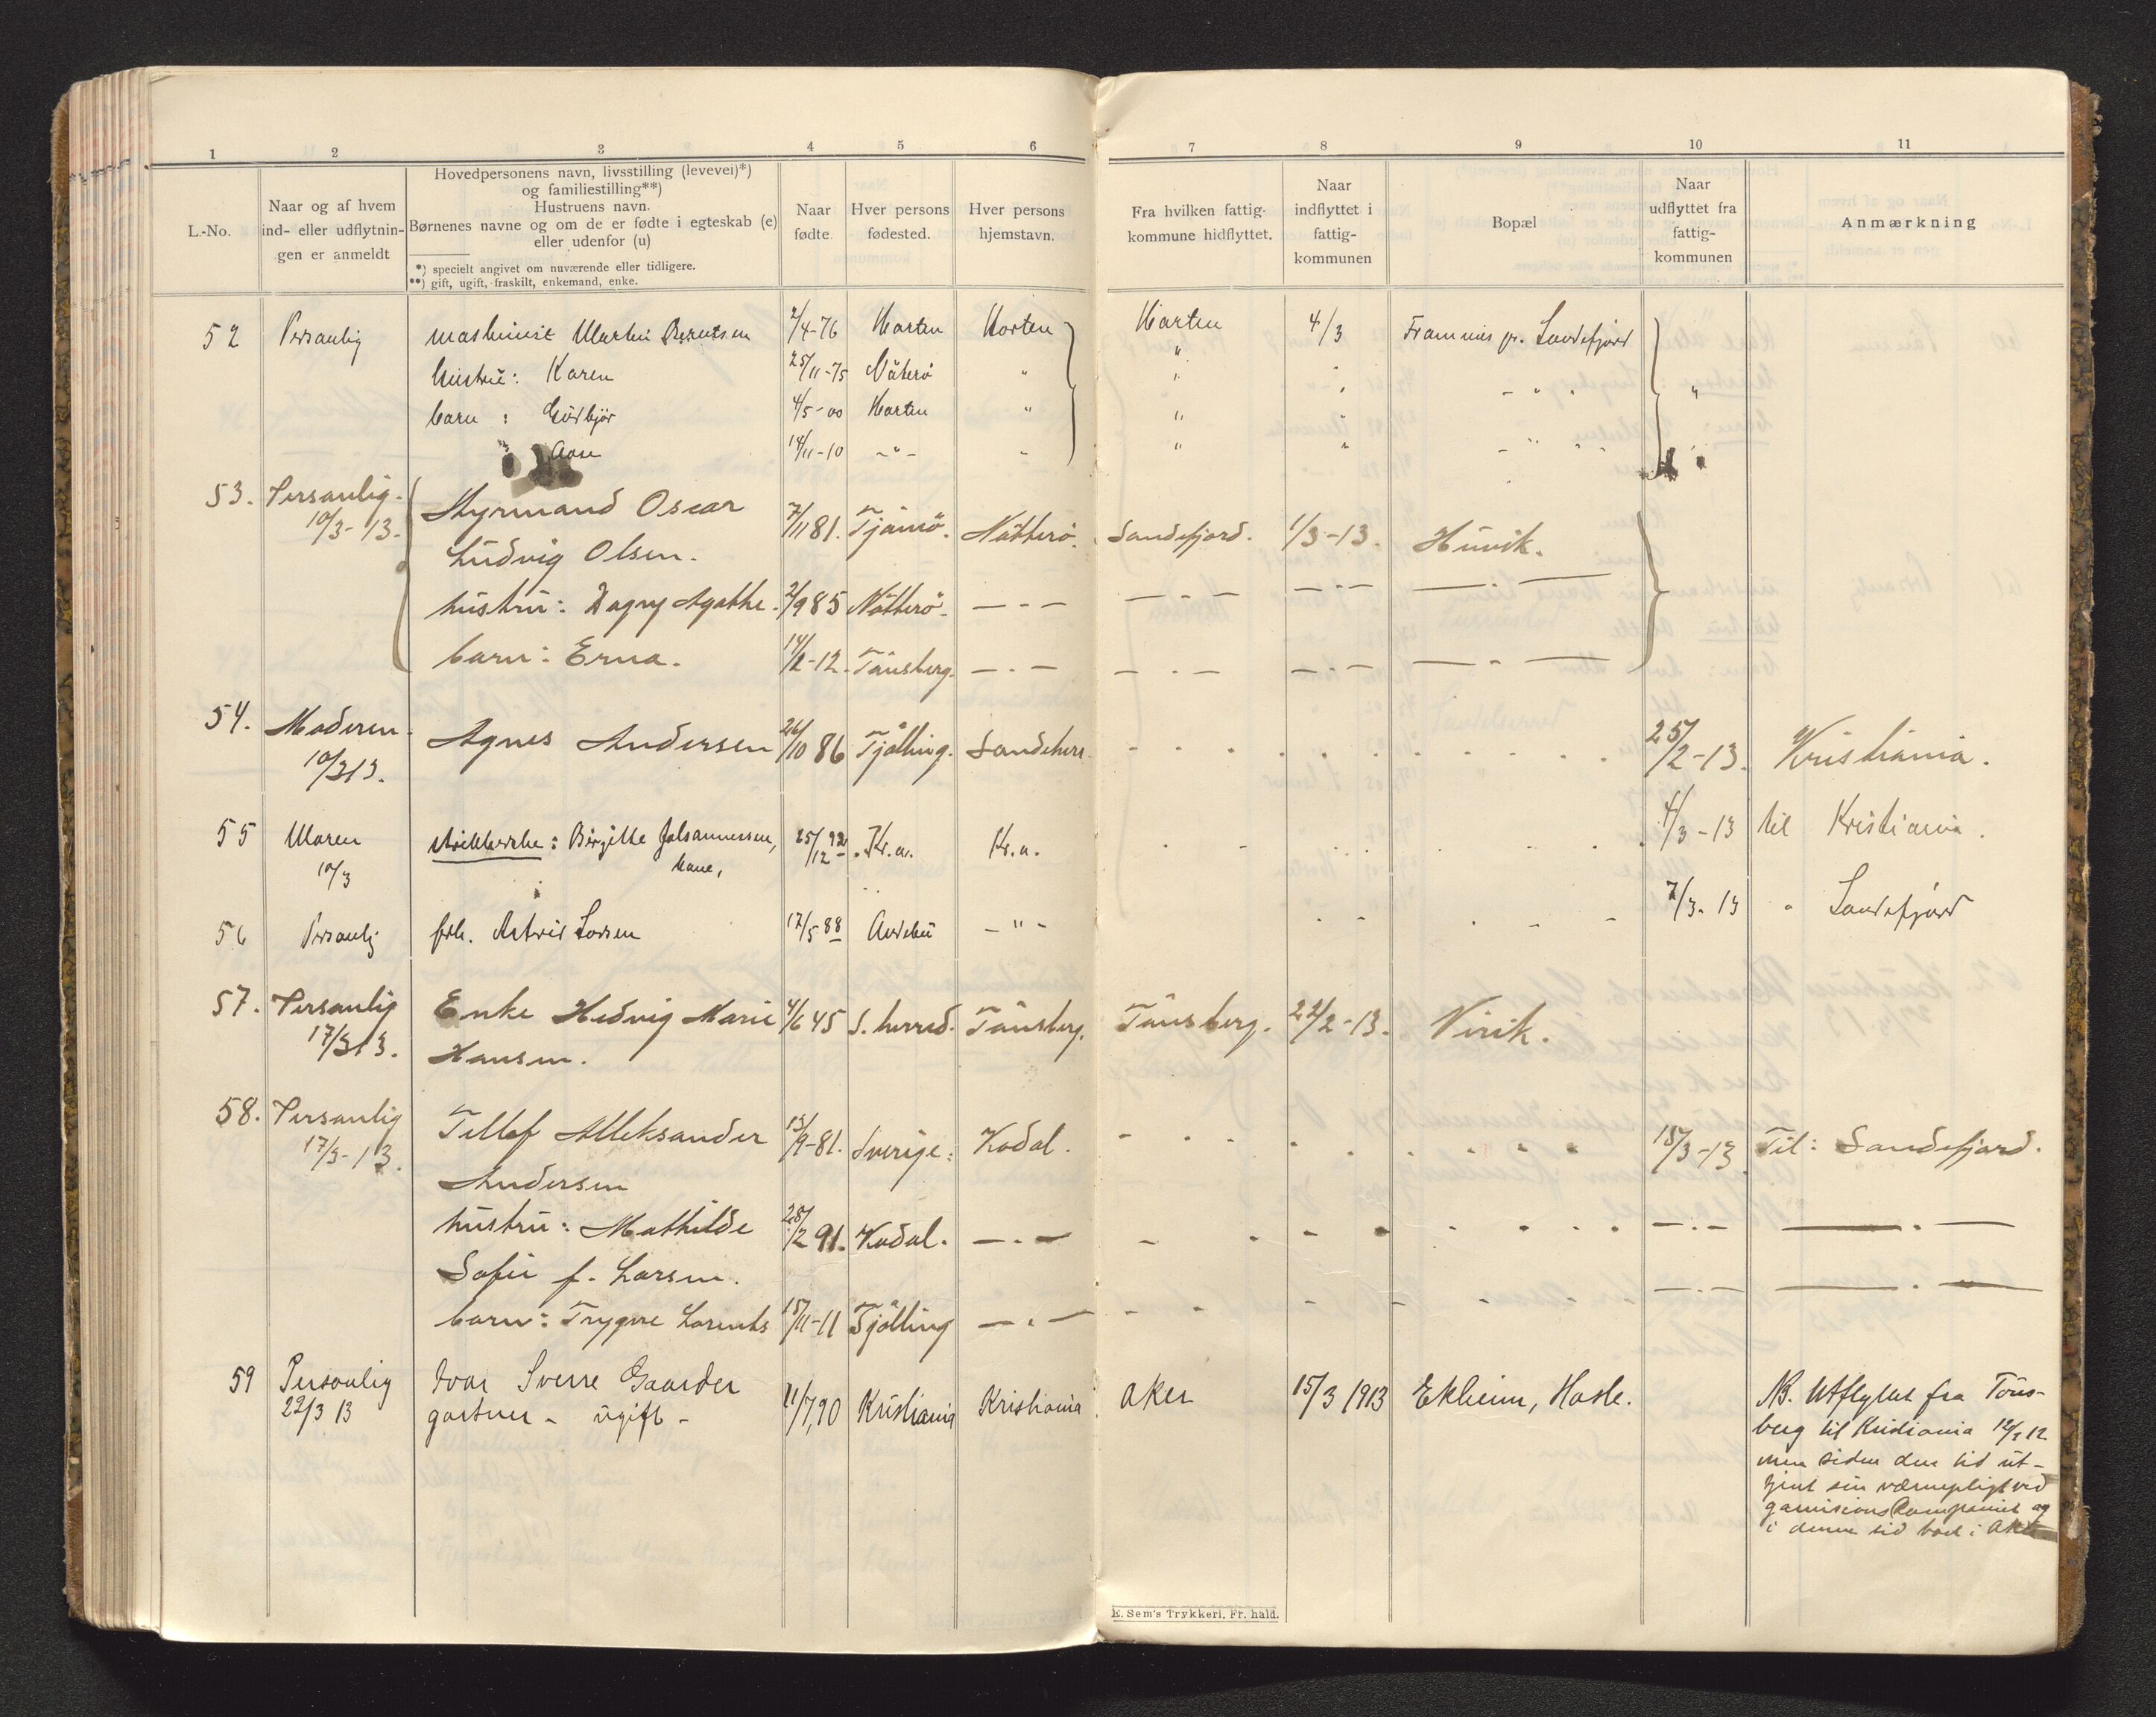 1 2 3 4 5 6 7 8 9 10 11
L.-No.
Naar og af hvem
ind- eller udflytnin-
gen er anmeldt
Hovedpersonens navn, livsstilling (levevei)*)
og familiestilling**)
Hustruens navn.
Børnenes navne og om de er fødte i egteskab (e)
eller udenfor (u)
*) specielt angivet om nuværende eller tidligere.
**) gift, ugift, fraskilt, enkemand, enke.
Naar
fødte.
Hver persons
fødested.
Hver persons
hjemstavn.
Fra hvilken fattig-
kommune hidflyttet.
Naar
indflyttet i
fattig-
kommunen
Bopæl
Naar
udflyttet fra
fattig-
kommunen
Anmærkning
52 Personlig maskinist Martin Berntsen 2/4-76 Horten Horten Horten 4/3 Framnæs pr. Sandefjord
hustru: Karen 25/11-75 Nøterø " " " - " -
barn: Gudbjør 4/5-00 Horten " " "
" Aase 14/11-10 - " - " " " - " -
53. Personlig. Styrmand Oscar
10/3-13. Ludvig Olsen. 7/11 81. Tjømø. Nøtterø. Sandefjord. 1/3-13. Huvik.
hustru: Dagny Agathe. 2/9 85 Nøtterø. — . — — . — — . — — . —
barn: Erna. 14/2-12. Tønsberg. — . — — . — — . — — . —
54. Moderen. Agnes Andersen 26/10 86 Tjølling. Sandeherr. 25/2-13. Kristiania.
10/3 13.
55 Maren : Birgitte Johannessen, 25/12 92 Kr.a. Kr.a. 4/3-13 til Kristiania.
10/3
56 Personlig frk. Astrid Larsen 17/5 88 Andebu - " - 7/3-13 " Sandefjord
57. Personlig Enke Hedvig Marie 4/6 45 S. herred. Tønsberg. Tønsberg. 22/2-13. Virik.
17/3 13. Hansen.
58. Personlig Tellef Alleksander 13/9-81. Sverige. Kodal. 15/3-13 Til: Sandefjord.
17/3-13. Andersen
hustru: Mathilde 28/2 91. Kodal. — . — — . — — . —
Sofie f. Larsen.
barn: Trygve Lorents 15/11-11 Tjølling — . — — . — — . —
59 Personlig Ivar Sverre Gaarder
22/3 13 gartner - ugift - 11/7,90 Kristiania Kristiania Aker 15/3 1913 Ekheim, Hasle.
NB. Utflyttet fra Tøns-
berg til Kristiania 12
men siden den tid ut-
tjent sin værnepligt ved
garnisons Kompaniet og
i denne tid boet i Aker
E. Sem's Trykkeri, Fr. hald.